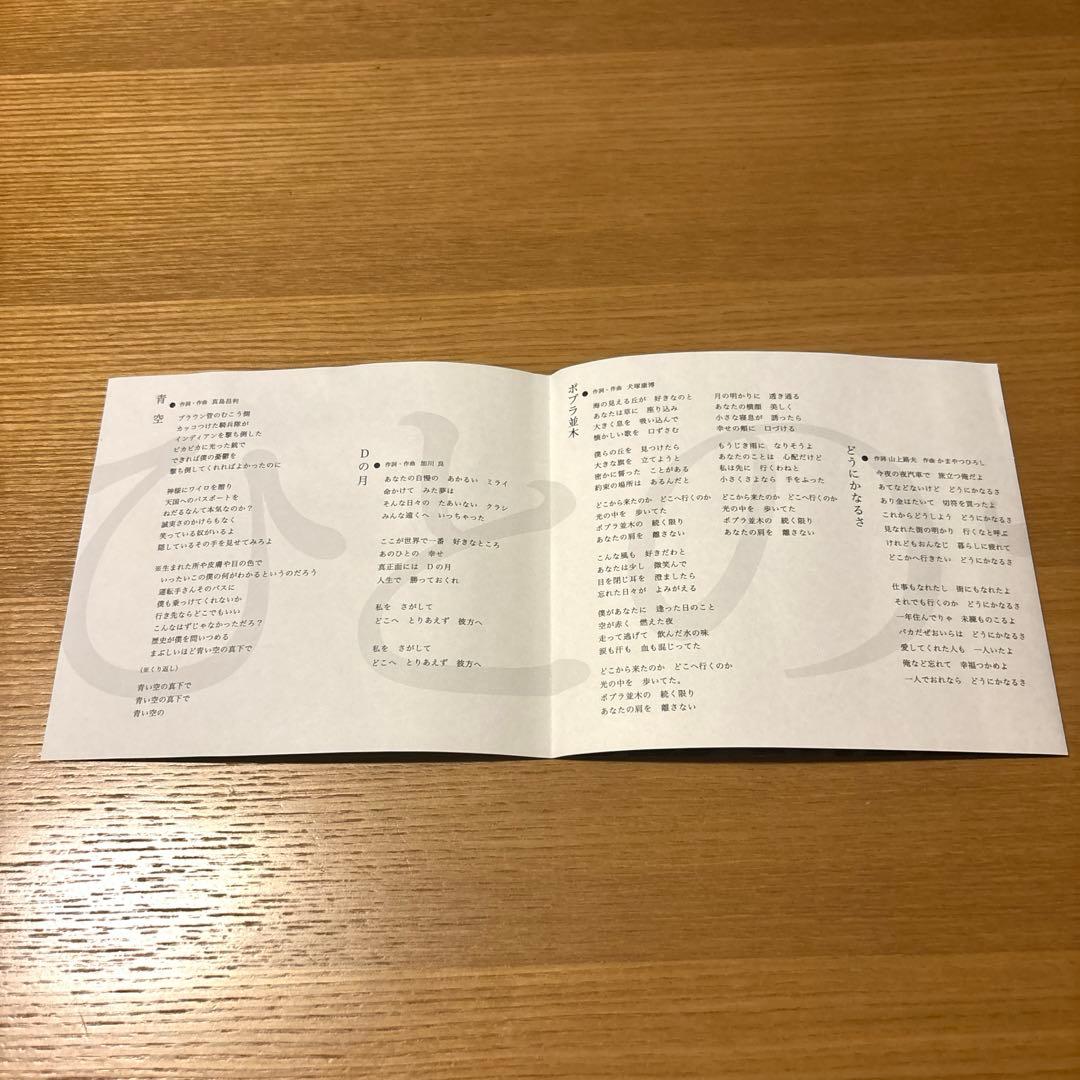 青空
作詞・作曲 真島昌利
ブラウン管のむこう側
カッコつけた騎兵隊が
インディアンを撃ち倒した
ピカピカに光った銃で
できれば僕の憂鬱を
撃ち倒してくれればよかったのに
神様にワイロを贈り
天国へのパスポートを
ねだるなんて本気なのか？
誠実さのかけらもなく
笑っている奴がいるよ
隠しているその手を見せてみろよ
※生まれた所や皮膚や目の色で
いったいこの僕の何がわかるというのだろう
運転手さんそのバスに
僕も乗っけてくれないか
行き先ならどこでもいい
こんなはずじゃなかっただろ？
歴史が僕を問いつめる
まぶしいほど青い空の真下で
(※くり返し)
青い空の真下で
青い空の真下で
青い空の
Dの月
作詞・作曲 加川 良
あなたの自慢の あかるい ミライ
命かけて みた夢は
そんな日々の たあいない クラシ
みんな遠くへ いっちゃった
ここが世界で一番 好きなところ
あのひとの 幸せ
真正面には Dの月
人生で 勝っておくれ
私を さがして
どこへ とりあえず 彼方へ
私を さがして
どこへ とりあえず 彼方へ
ポプラ並木
作詞・作曲 犬塚康博
海の見える丘が 好きなのと
あなたは草に 座り込み
大きく息を 吸い込んで
懐かしい歌を 口ずさむ
僕らの丘を 見つけたら
大きな旗を 立てようと
密かに誓った ことがある
約束の場所は あるんだと
どこから来たのか どこへ行くのか
光の中を 歩いてた
ポプラ並木の 続く限り
あなたの肩を 離さない
こんな風も 好きだわと
あなたは少し 微笑んで
目を閉じ耳を 澄ましたら
忘れた日々が よみがえる
僕があなたに 逢った日のこと
空が赤く 燃えた夜
走って逃げて 飲んだ水の味
涙も汗も 血も混じってた
どこから来たのか どこへ行くのか
光の中を 歩いてた。
ポプラ並木の 続く限り
あなたの肩を 離さない
月の明かりに 透き通る
あなたの横顔 美しく
小さな寝息が 誘ったら
幸せの頬に 口づける
もうじき雨に なりそうよ
あなたのことは 心配だけど
私は先に 行くわねと
小さくさよなら 手をふった
どこから来たのか どこへ行くのか
光の中を 歩いてた
ポプラ並木の 続く限り
あなたの肩を 離さない
どうにかなるさ
作詞 山上路夫 作曲 かまやつひろし
今夜の夜汽車で 旅立つ俺だよ
あてなどないけど どうにかなるさ
あり金はたいて 切符を買ったよ
これからどうしよう どうにかなるさ
見なれた街の明かり 行くなと呼ぶ
けれどもおんなじ 暮らしに疲れて
どこかへ行きたい どうにかなるさ
仕事もなれたし 街にもなれたよ
それでも行くのか どうにかなるさ
一年住んでりゃ 未練ものこるよ
バカだぜおいらは どうにかなるさ
愛してくれた人も 一人いたよ
俺など忘れて 幸福つかめよ
一人でおれなら どうにかなるさ